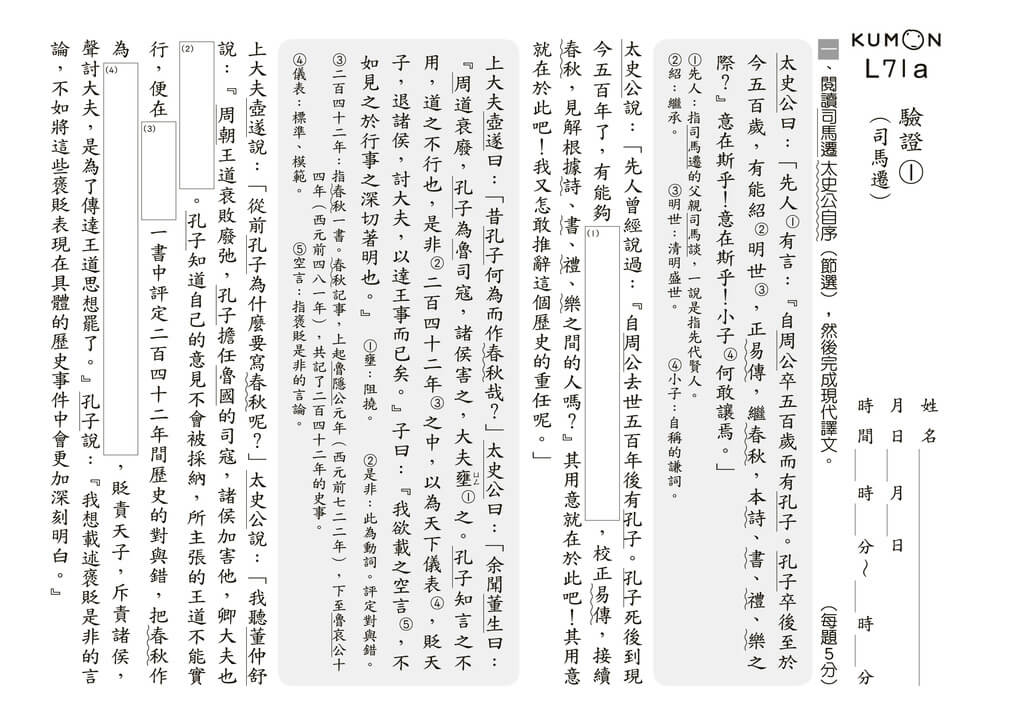 KUMON
L71a
驗證①
（司馬遷）
姓名
月日　月　日
時間　時　分～　時　分
一、閱讀司馬遷 太史公自序（節選），然後完成現代譯文。（每題5分）
太史公曰：「先人①有言：『自周公卒五百歲而有孔子。孔子卒後至於
今五百歲，有能紹②明世③，正易傳，繼春秋，本詩、書、禮、樂之
際？』意在斯乎！意在斯乎！小子④何敢讓焉。」
①先人：指司馬遷的父親司馬談，一說是指先代賢人。
②紹：繼承。　③明世：清明盛世。　④小子：自稱的謙詞。
太史公說：「先人曾經說過：『自周公去世五百年後有孔子。孔子死後到現
今五百年了，有能夠(1)，校正易傳，接續
春秋，見解根據詩、書、禮、樂之間的人嗎？』其用意就在於此吧！其用意
就在於此吧！我又怎敢推辭這個歷史的重任呢。」
上大夫壺遂曰：「昔孔子何為而作春秋哉？」太史公曰：「余聞董生曰：
『周道衰廢，孔子為魯司寇，諸侯害之，大夫壅ㄩㄥ①之。孔子知言之不
用，道之不行也，是非②二百四十二年③之中，以為天下儀表④，貶天
子，退諸侯，討大夫，以達王事而已矣。』子曰：『我欲載之空言⑤，不
如見之於行事之深切著明也。』　①壅：阻撓。　②是非：此為動詞。評定對與錯。
③二百四十二年：指春秋一書。春秋記事，上起魯隱公元年（西元前七二二年），下至魯哀公十
四年（西元前四八一年），共記了二百四十二年的史事。
④儀表：標準、模範。　⑤空言：指褒貶是非的言論。
上大夫壺遂說：「從前孔子為什麼要寫春秋呢？」太史公說：「我聽董仲舒
說：『周朝王道衰敗廢弛，孔子擔任魯國的司寇，諸侯加害他，卿大夫也
(2)。孔子知道自己的意見不會被採納，所主張的王道不能實
行，便在(3)一書中評定二百四十二年間歷史的對與錯，把春秋作
為(4)，貶責天子，斥責諸侯，
聲討大夫，是為了傳達王道思想罷了。』孔子說：『我想載述褒貶是非的言
論，不如將這些褒貶表現在具體的歷史事件中會更加深刻明白。』